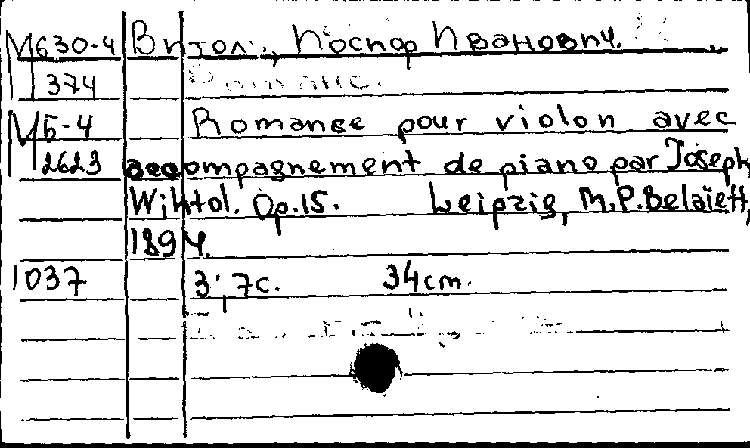 М630-4 Витол, Иосиф Иванович.
374 Романс.
М5-4 Romanse pour violon avec
2623 accompagnement de piano par Joseph
Wihtol. Op.15. Leipzig, M.P.Belaieff,
1894.
1037 3; 7с. 34cm.